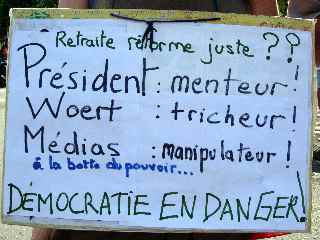 Retraite réforme juste ??
Président : menteur !
Woert : tricheur !
Médias : manipulateur !
à la botte du pouvoir...
DÉMOCRATIE EN DANGER !